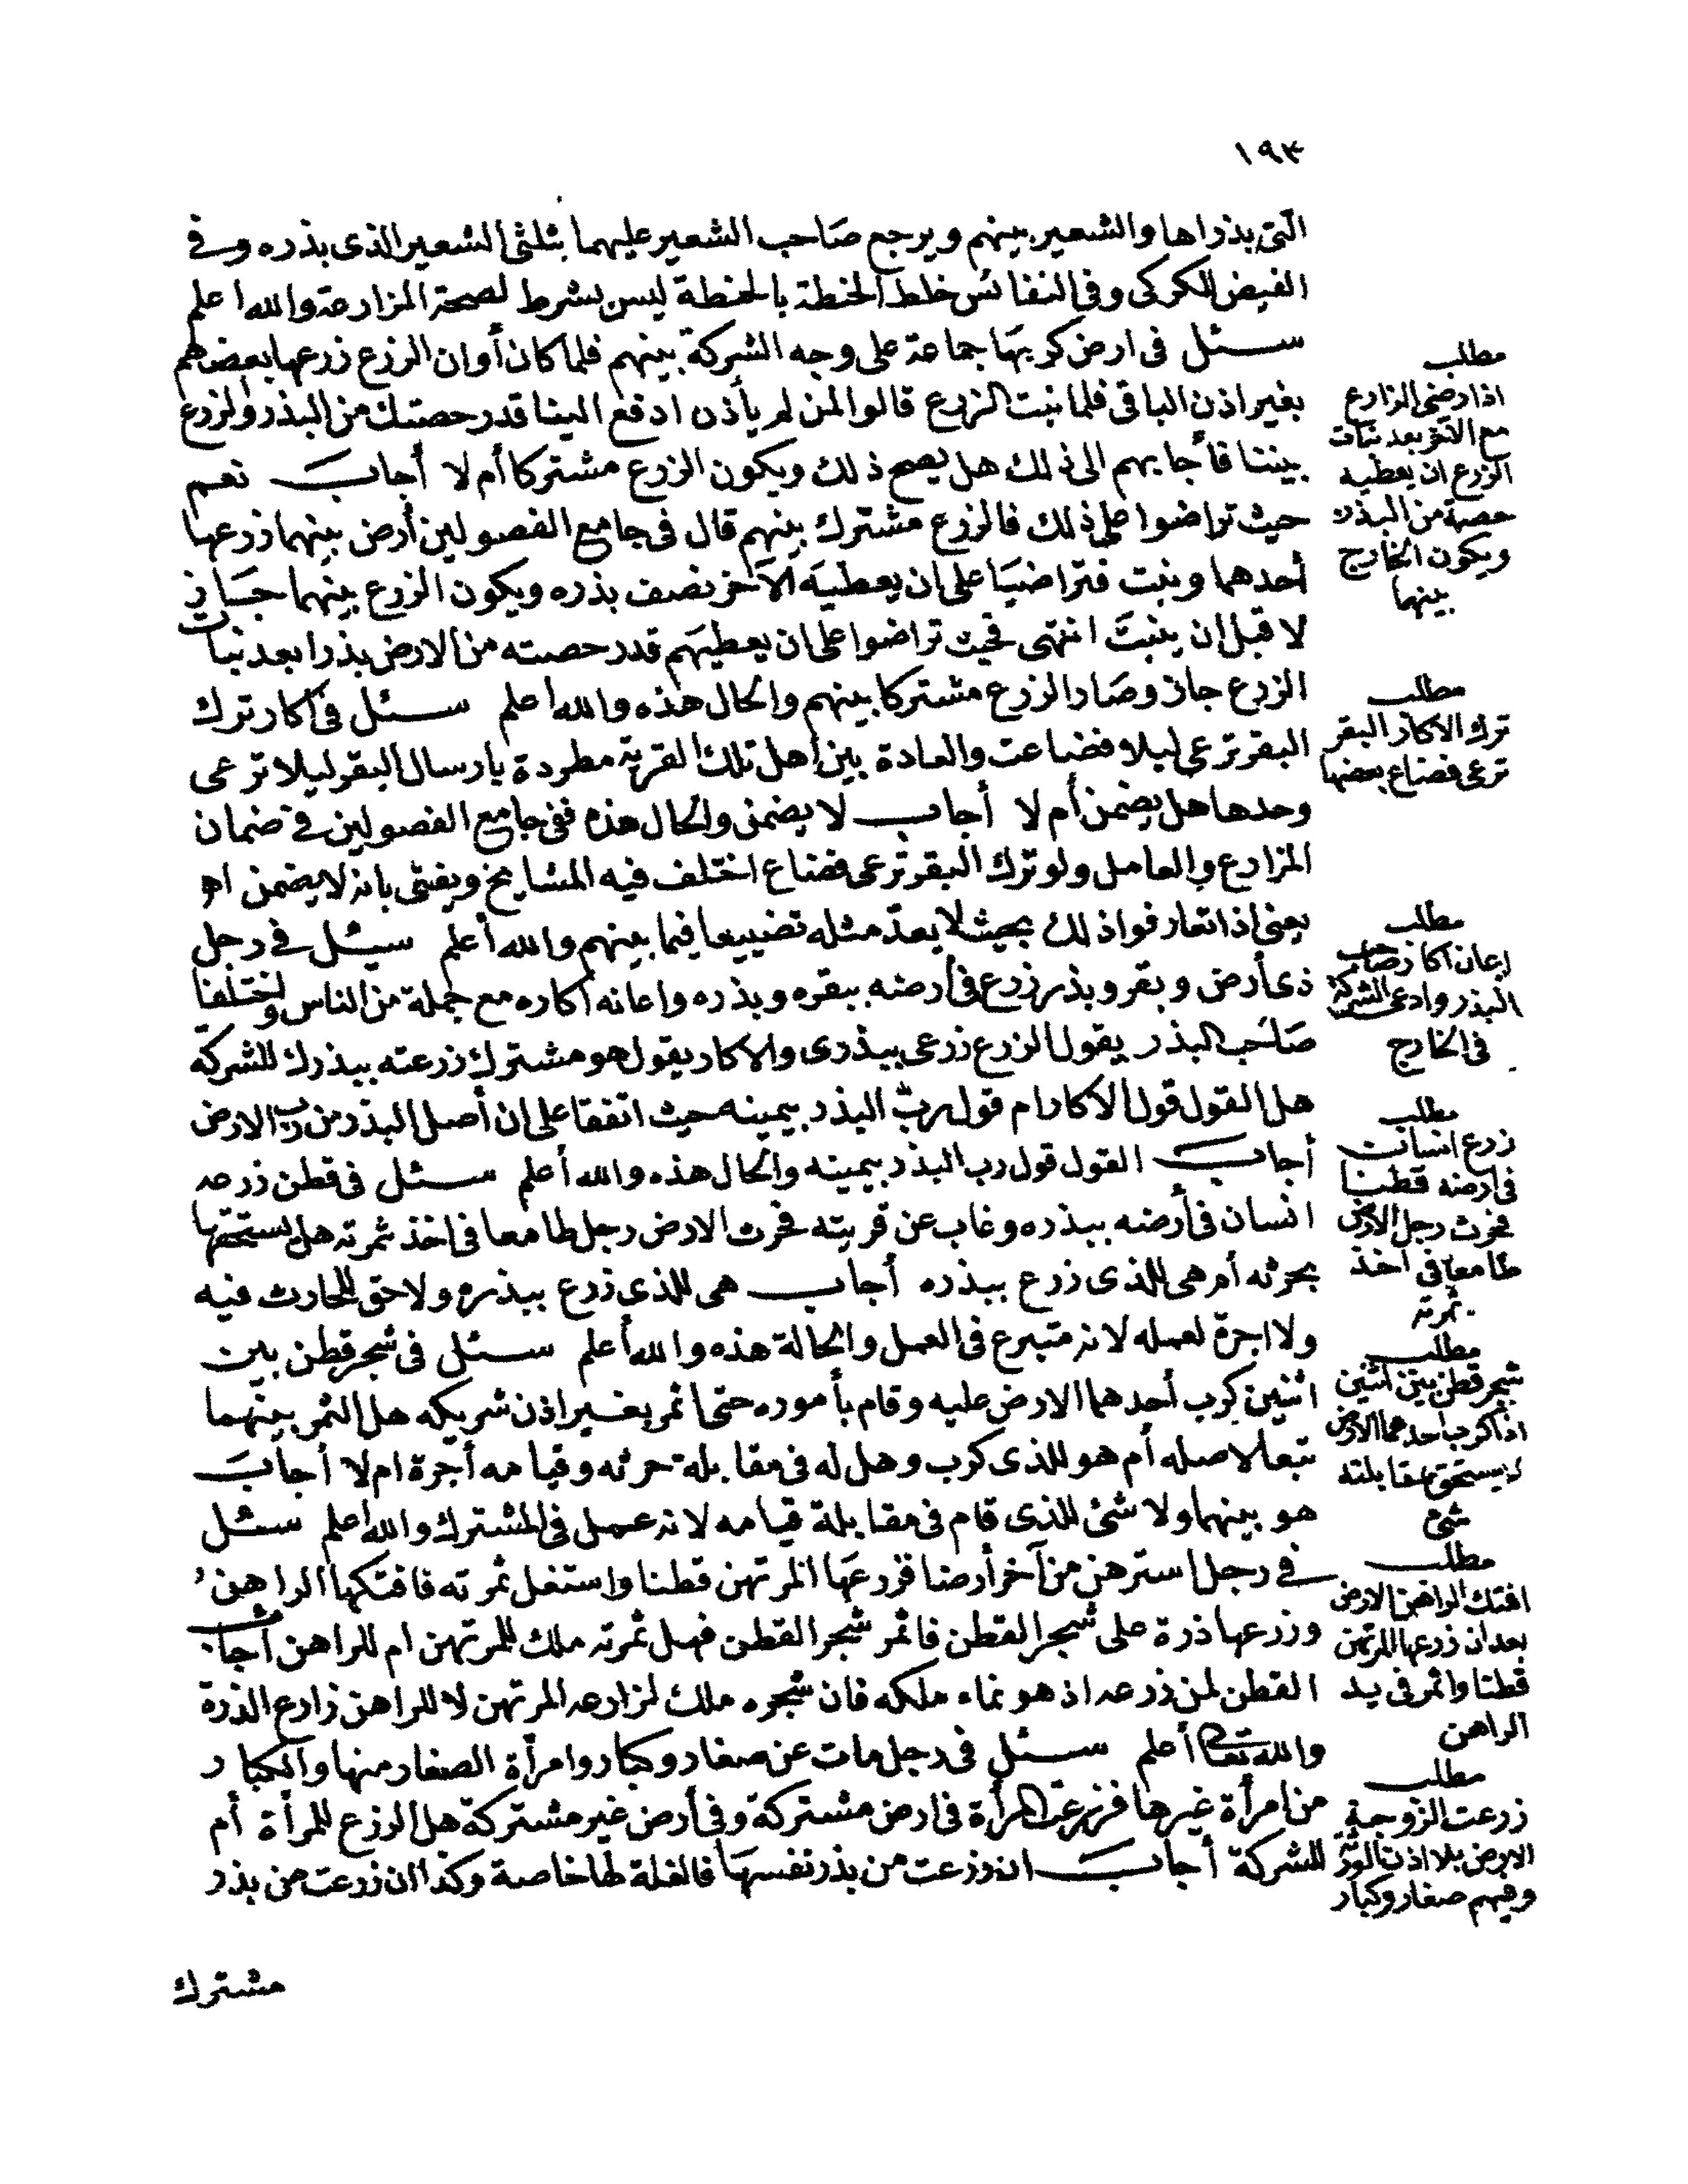 ١٩٣
التى بذراها والشعير بينهم ويرجع صاحب الشعير عليهما بثلثى الشعير الذى بذره وفى
الفيض للكركى وفى النفائس خلط الحنطة بالحنطة ليس بشرط لصحة المزارعة والله اعلم
سئل فى ارض كربها جماعة على وجه الشركة بينهم فلما كان أوان الزرع زرعها بعضهم
بغير اذن الباقى فلما نبت الزرع قالوا لمن لم يأذن ادفع الينا قدر حصتك من البذر والزرع
بيننا فأجابهم الى ذلك هل يصح ذلك ويكون الزرع مشتركا أم لا أجاب نعم
حيث تراضوا على ذلك فالزرع مشترك بينهم قال فى جامع الفصولين أرض بينهما زرعها
أحدهما ونبت فتراضيا على ان يعطيه الآخر نصف بذره ويكون الزرع بينهما جاز
لا قبل ان ينبت انتهى فحيث تراضوا على ان يعطيهم قدر حصته من الارض بذرا بعد نبات
الزرع جاز وصار الزرع مشتركا بينهم والحال هذه والله اعلم سئل فى أكار ترك
البقر ترعى ليلا فضاعت والعادة بين أهل تلك القرية مطردة بارسال البقر ليلا ترعى
وحدها هل يضمن أم لا أجاب لا يضمن والحال هذه ففى جامع الفصولين فى ضمان
المزارع والعامل ولو ترك البقر ترعى فضاع اختلف فيه المشايخ ويفتى بانه لا يضمن اه
يعنى اذا تعارفوا ذلك بحيث لا يعد مثله تضييعا فيما بينهم والله أعلم سئل فى رجل
ذى أرض وبقر وبذر زرع فى أرضه ببقره وبذره واعانه أكاره مع جملة من الناس واختلفا
صاحب البذر يقول الزرع زرعى ببذرى والاكار يقول هو مشترك زرعته ببذرك للشركة
هل القول قول الاكار ام قول رب البذر بيمينه حيث اتفقا على ان أصل البذر من رب الارض
أجاب القول قول رب البذر بيمينه والحال هذه والله أعلم سئل فى قطن زرعه
انسان فى أرضه ببذره وغاب عن قريته فحرث الارض رجل طامعا فى اخذ ثمرته هل يستحقها
بحرثه أم هى للذى زرع ببذره أجاب هى للذى زرع ببذره ولا حق للحارث فيه
ولا اجرة لعمله لانه متبرع فى العمل والحالة هذه والله أعلم سئل فى شجر قطن بين
اثنين كرب أحدهما الارض عليه وقام بأموره حتى اثمر بغير اذن شريكه هل الثمر بينهما
تبعا لاصله أم هو للذى كرب وهل له فى مقابلة حرثه وقيامه أجرة ام لا أجاب
هو بينهما ولا شئ للذى قام فى مقابلة قيامه لانه عمل فى المشترك والله اعلم سئل
فى رجل استرهن من آخر أرضا فزرعها المرتهن قطنا واستغل ثمرته فافتكها الراهن
وزرعها ذرة على شجر القطن فاثمر شجر القطن فهل ثمرته ملك للمرتهن ام للراهن أجاب
القطن لمن زرعه اذ هو نماء ملكه فان شجره ملك لزارعه المرتهن لا للراهن زارع الذرة
والله تعالى أعلم سئل فى رجل مات عن صغار وكبار وامرأة الصغار منها والكبار
من امرأة غيرها فزرعت المرأة فى ارض مشتركة وفى أرض غير مشتركة هل الزرع للمرأة أم
للشركة أجاب ان زرعت من بذر نفسها فالغلة لها خاصة وكذا ان زرعت من بذر
مشترك
مطلب
اذا رضى الزارع
مع الآخر بعد نبات
الزرع ان يعطيه
حصة من البذر
ويكون الخارج
بينهما
مطلب
ترك الاكار البقر
ترعى فضاع بعضها
مطلب
اعان اكار صاحب
البذر وادعى الشركة
فى الخارج
مطلب
زرع انسان
فى ارضه قطنا
فحرث رجل الارض
طامعا فى اخذ
ثمرته
مطلب
شجر قطن بين اثنين
اذا كرب احدهما الارض
لا يستحق بمقابلته
شئ
مطلب
افتك الراهن الارض
بعد ان زرعها المرتهن
قطنا واثمر فى يد
الراهن
مطلب
زرعت الزوجة
الارض بلا اذن
وفيهم صغار وكبار